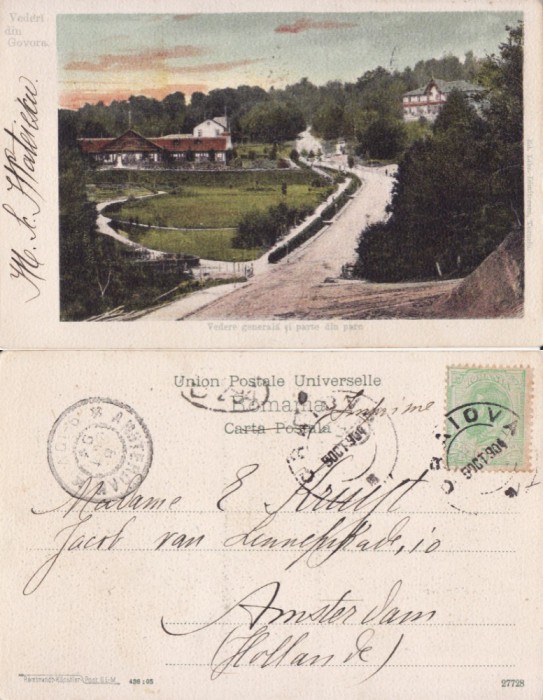 Vederi
din
Govora.
27728
Vedere generală și parte din parc
Union Postale Universelle
Romania
Carta Postala
Imprime
AMSTERDAM
CRAIOVA
5 OCT 904
CRAIOVA
5 OCT 904
Madame E Kruyft
Jacob van Lennepkade, 10
Amsterdam
(Hollande)
426 : 05
27728